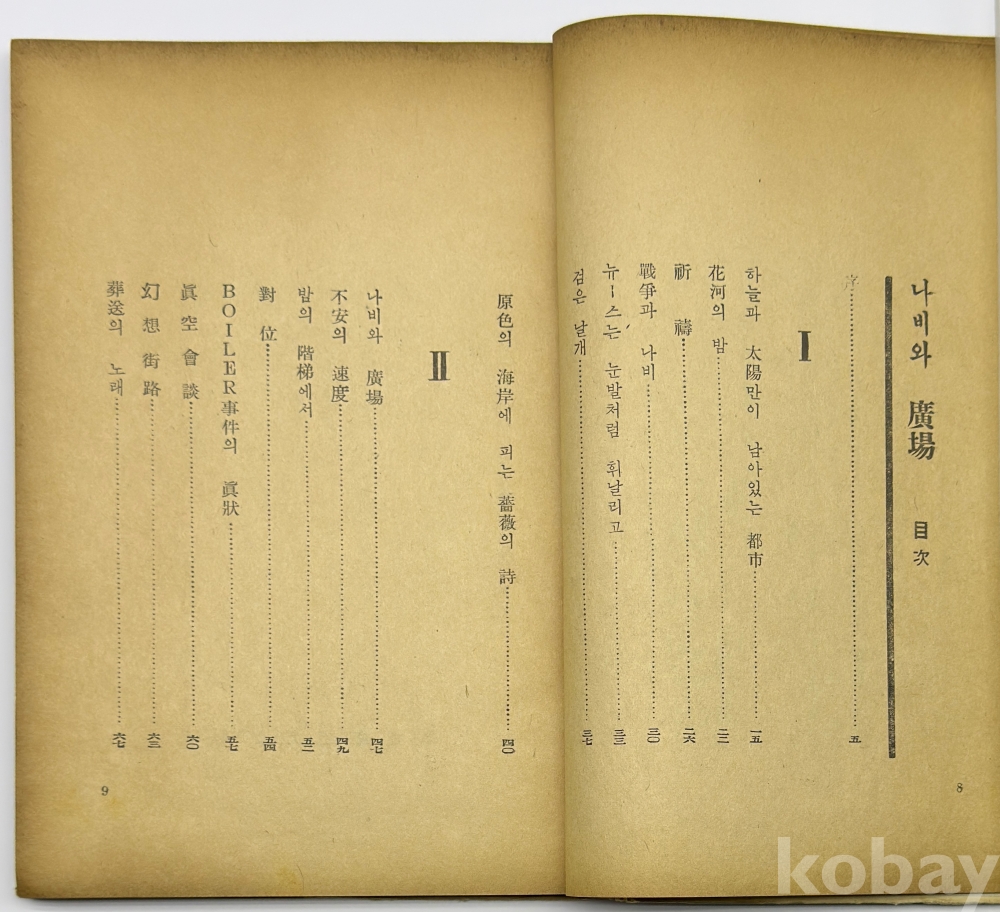 나비와 廣場 目次
序 五
I
하늘과 太陽만이 남아있는 都市 一五
花河의 밤 二二
祈禱 二六
戰爭과 나비 三〇
뉴ー스는 눈발처럼 휘날리고 三三
검은 날개 三七
8
原色의 海岸에 피는 薔薇의 詩 四〇
II
나비와 廣場 四七
不安의 速度 四九
밤의 階梯에서 五二
對位 五四
BOILER事件의 眞狀 五七
眞空會談 六〇
幻想街路 六三
葬送의 노래 六七
9
kobay